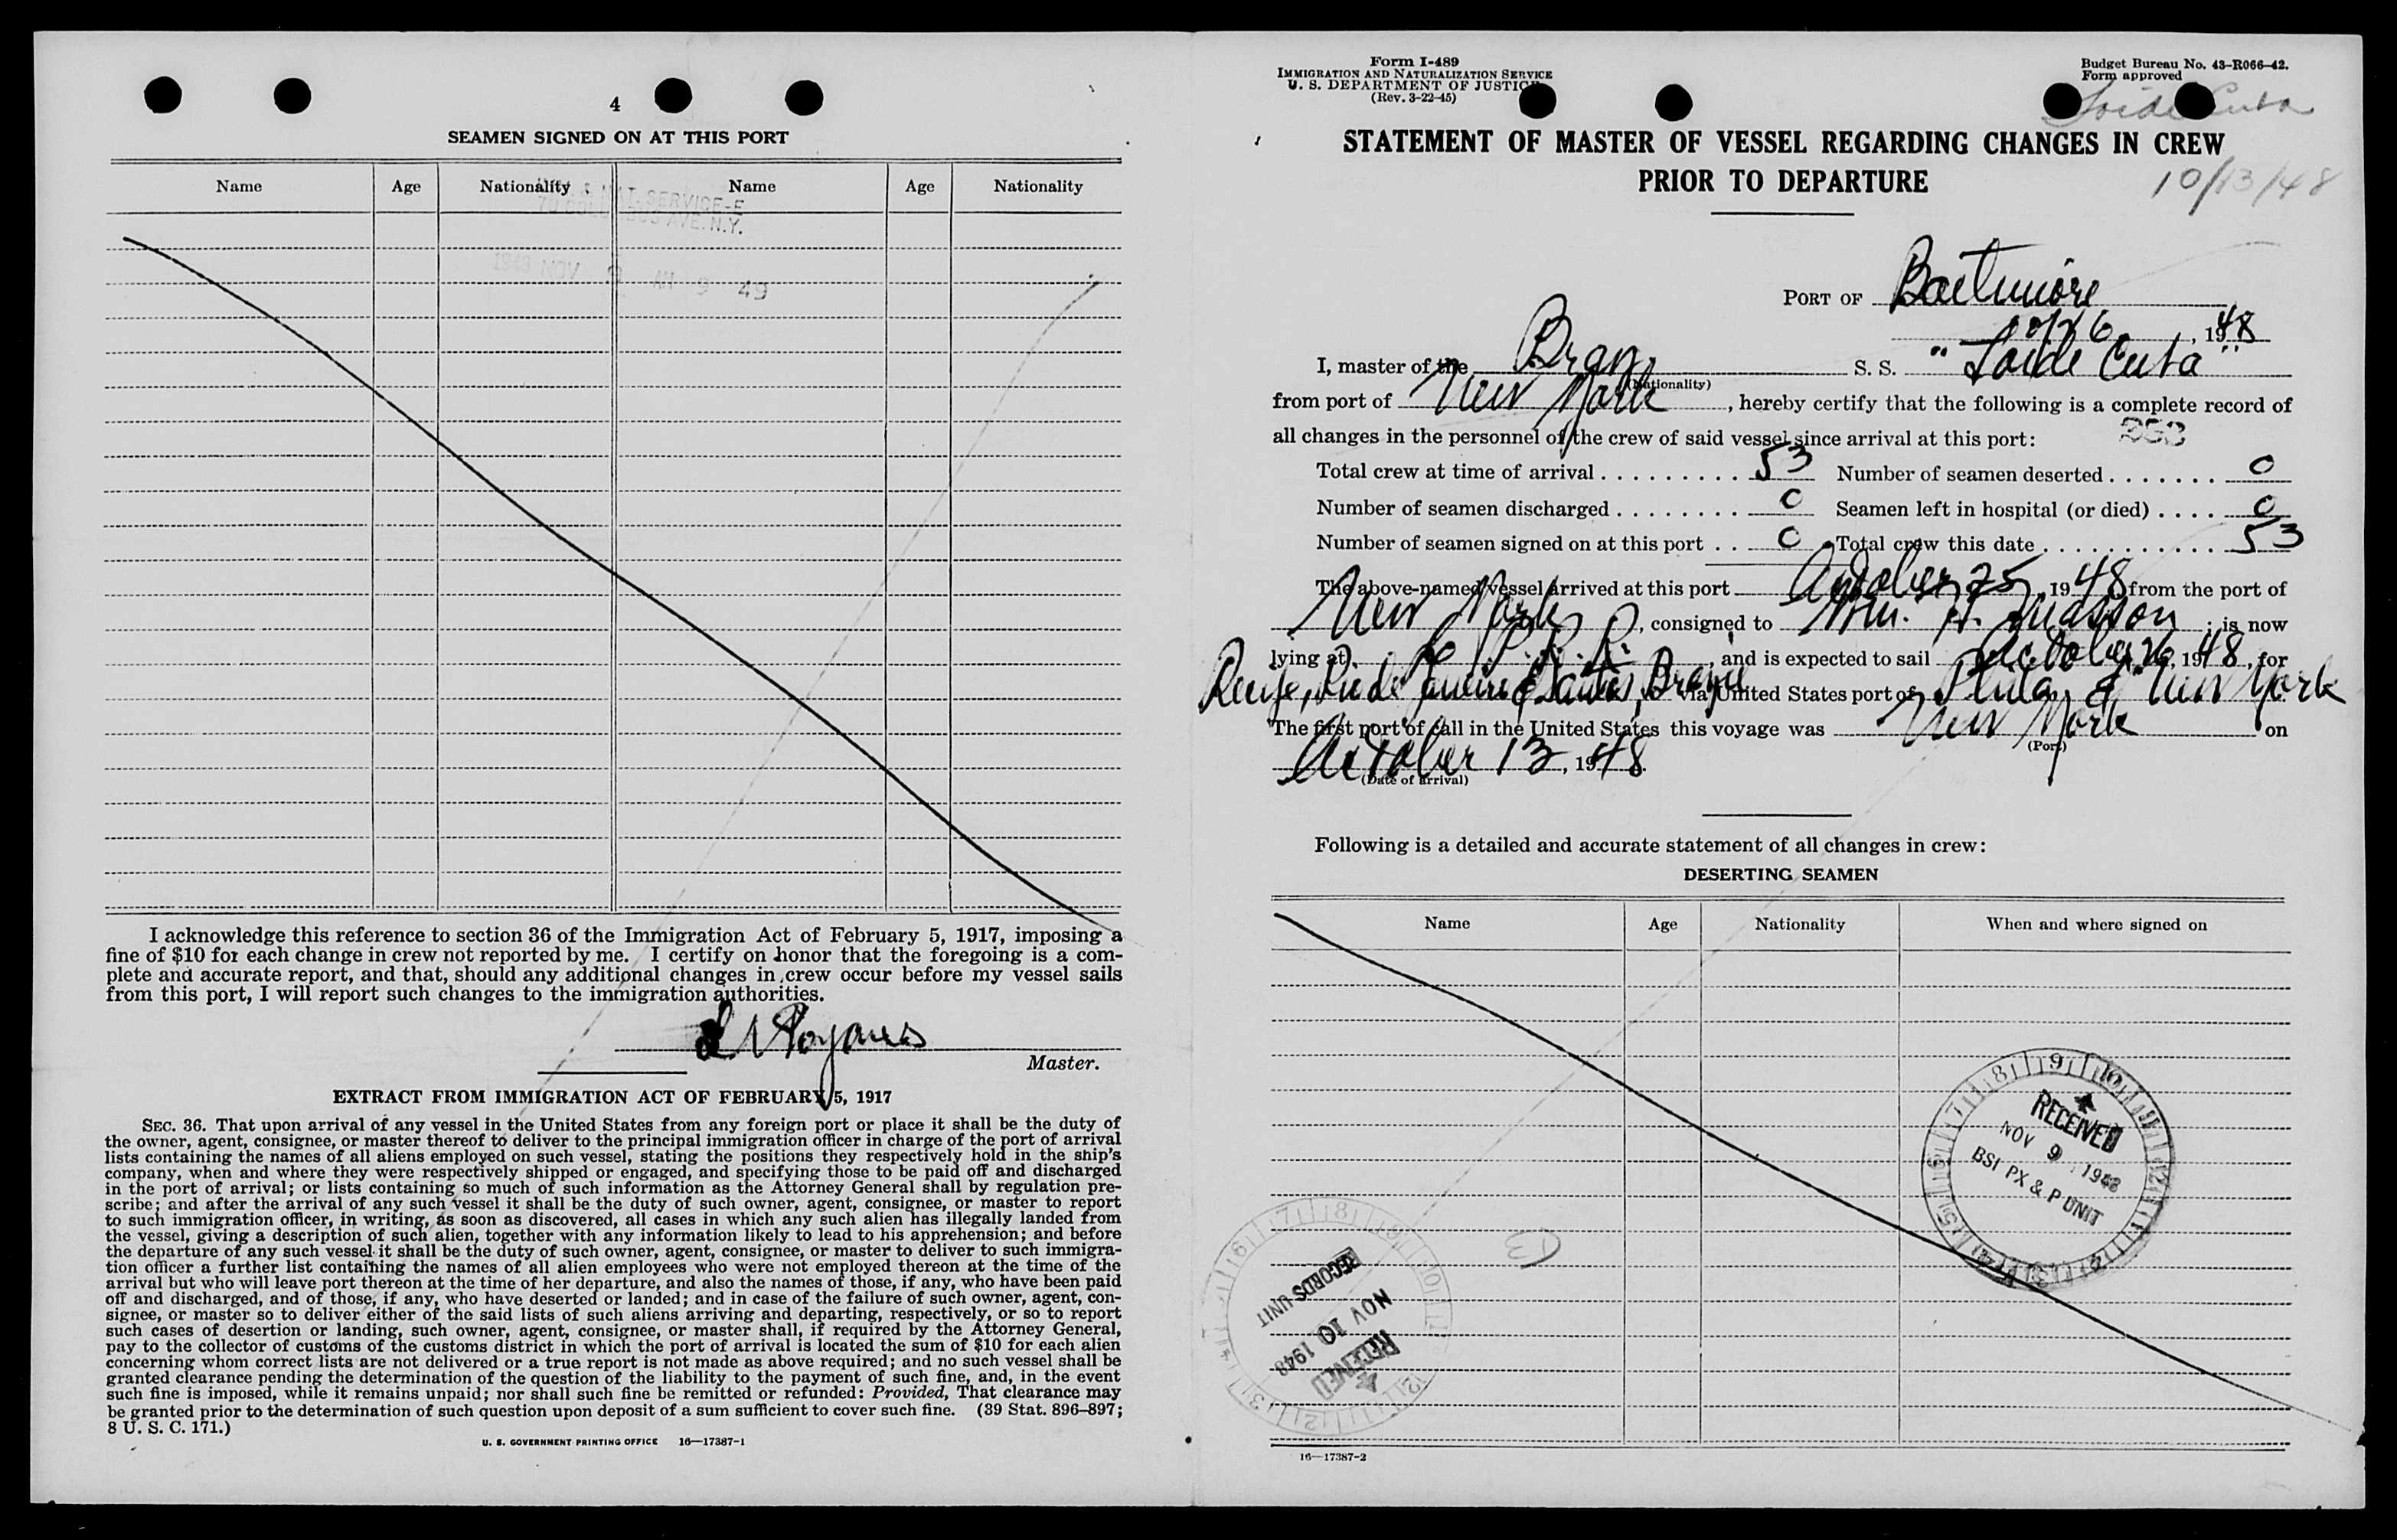 4
SEAMEN SIGNED ON AT THIS PORT
Name Age Nationality Name Age Nationality
SERVICE-E
70 COLUMBUS AVE. N.Y.
1948 NOV 9 AM 9 49
I acknowledge this reference to section 36 of the Immigration Act of February 5, 1917, imposing a
fine of $10 for each change in crew not reported by me. I certify on honor that the foregoing is a com-
plete and accurate report, and that, should any additional changes in crew occur before my vessel sails
from this port, I will report such changes to the immigration authorities.
Master.
EXTRACT FROM IMMIGRATION ACT OF FEBRUARY 5, 1917
SEC. 36. That upon arrival of any vessel in the United States from any foreign port or place it shall be the duty of
the owner, agent, consignee, or master thereof to deliver to the principal immigration officer in charge of the port of arrival
lists containing the names of all aliens employed on such vessel, stating the positions they respectively hold in the ship's
company, when and where they were respectively shipped or engaged, and specifying those to be paid off and discharged
in the port of arrival; or lists containing so much of such information as the Attorney General shall by regulation pre-
scribe; and after the arrival of any such vessel it shall be the duty of such owner, agent, consignee, or master to report
to such immigration officer, in writing, as soon as discovered, all cases in which any such alien has illegally landed from
the vessel, giving a description of such alien, together with any information likely to lead to his apprehension; and before
the departure of any such vessel it shall be the duty of such owner, agent, consignee, or master to deliver to such immigra-
tion officer a further list containing the names of all alien employees who were not employed thereon at the time of the
arrival but who will leave port thereon at the time of her departure, and also the names of those, if any, who have been paid
off and discharged, and of those, if any, who have deserted or landed; and in case of the failure of such owner, agent, con-
signee, or master so to deliver either of the said lists of such aliens arriving and departing, respectively, or so to report
such cases of desertion or landing, such owner, agent, consignee, or master shall, if required by the Attorney General,
pay to the collector of customs of the customs district in which the port of arrival is located the sum of $10 for each alien
concerning whom correct lists are not delivered or a true report is not made as above required; and no such vessel shall be
granted clearance pending the determination of the question of the liability to the payment of such fine, and, in the event
such fine is imposed, while it remains unpaid; nor shall such fine be remitted or refunded: Provided, That clearance may
be granted prior to the determination of such question upon deposit of a sum sufficient to cover such fine. (39 Stat. 896–897;
8 U. S. C. 171.)
U. S. GOVERNMENT PRINTING OFFICE 16—17387-1
Form I-489
IMMIGRATION AND NATURALIZATION SERVICE
U. S. DEPARTMENT OF JUSTICE
(Rev. 3-22-45)
Budget Bureau No. 43-R066-42.
Form approved
Loide Cuba
STATEMENT OF MASTER OF VESSEL REGARDING CHANGES IN CREW
PRIOR TO DEPARTURE
10/13/48
PORT OF Baltimore
10/26, 1948
I, master of the Braz. S. S. "Loide Cuba"
(Nationality)
from port of New York, hereby certify that the following is a complete record of
all changes in the personnel of the crew of said vessel since arrival at this port:
Total crew at time of arrival . . . . . . . . . . 53 Number of seamen deserted . . . . . . . 0
Number of seamen discharged . . . . . . . . 0 Seamen left in hospital (or died) . . . . 0
Number of seamen signed on at this port . . 0 Total crew this date . . . . . . . . . . . . 53
The above-named vessel arrived at this port October 25, 1948 from the port of
New York, consigned to Wm. H. Masson; is now
lying at P. R. R., and is expected to sail October 26, 1948, for
Recife, Rio de Janeiro & Santos, Brazil via United States port of Phila. & New York
The first port of call in the United States this voyage was New York on
(Port)
October 13, 1948.
(Date of arrival)
Following is a detailed and accurate statement of all changes in crew:
DESERTING SEAMEN
Name Age Nationality When and where signed on
RECEIVED
NOV 9 1948
BSI PX & P UNIT
RECEIVED
NOV 10 1948
RECORDS UNIT
16—17387-2